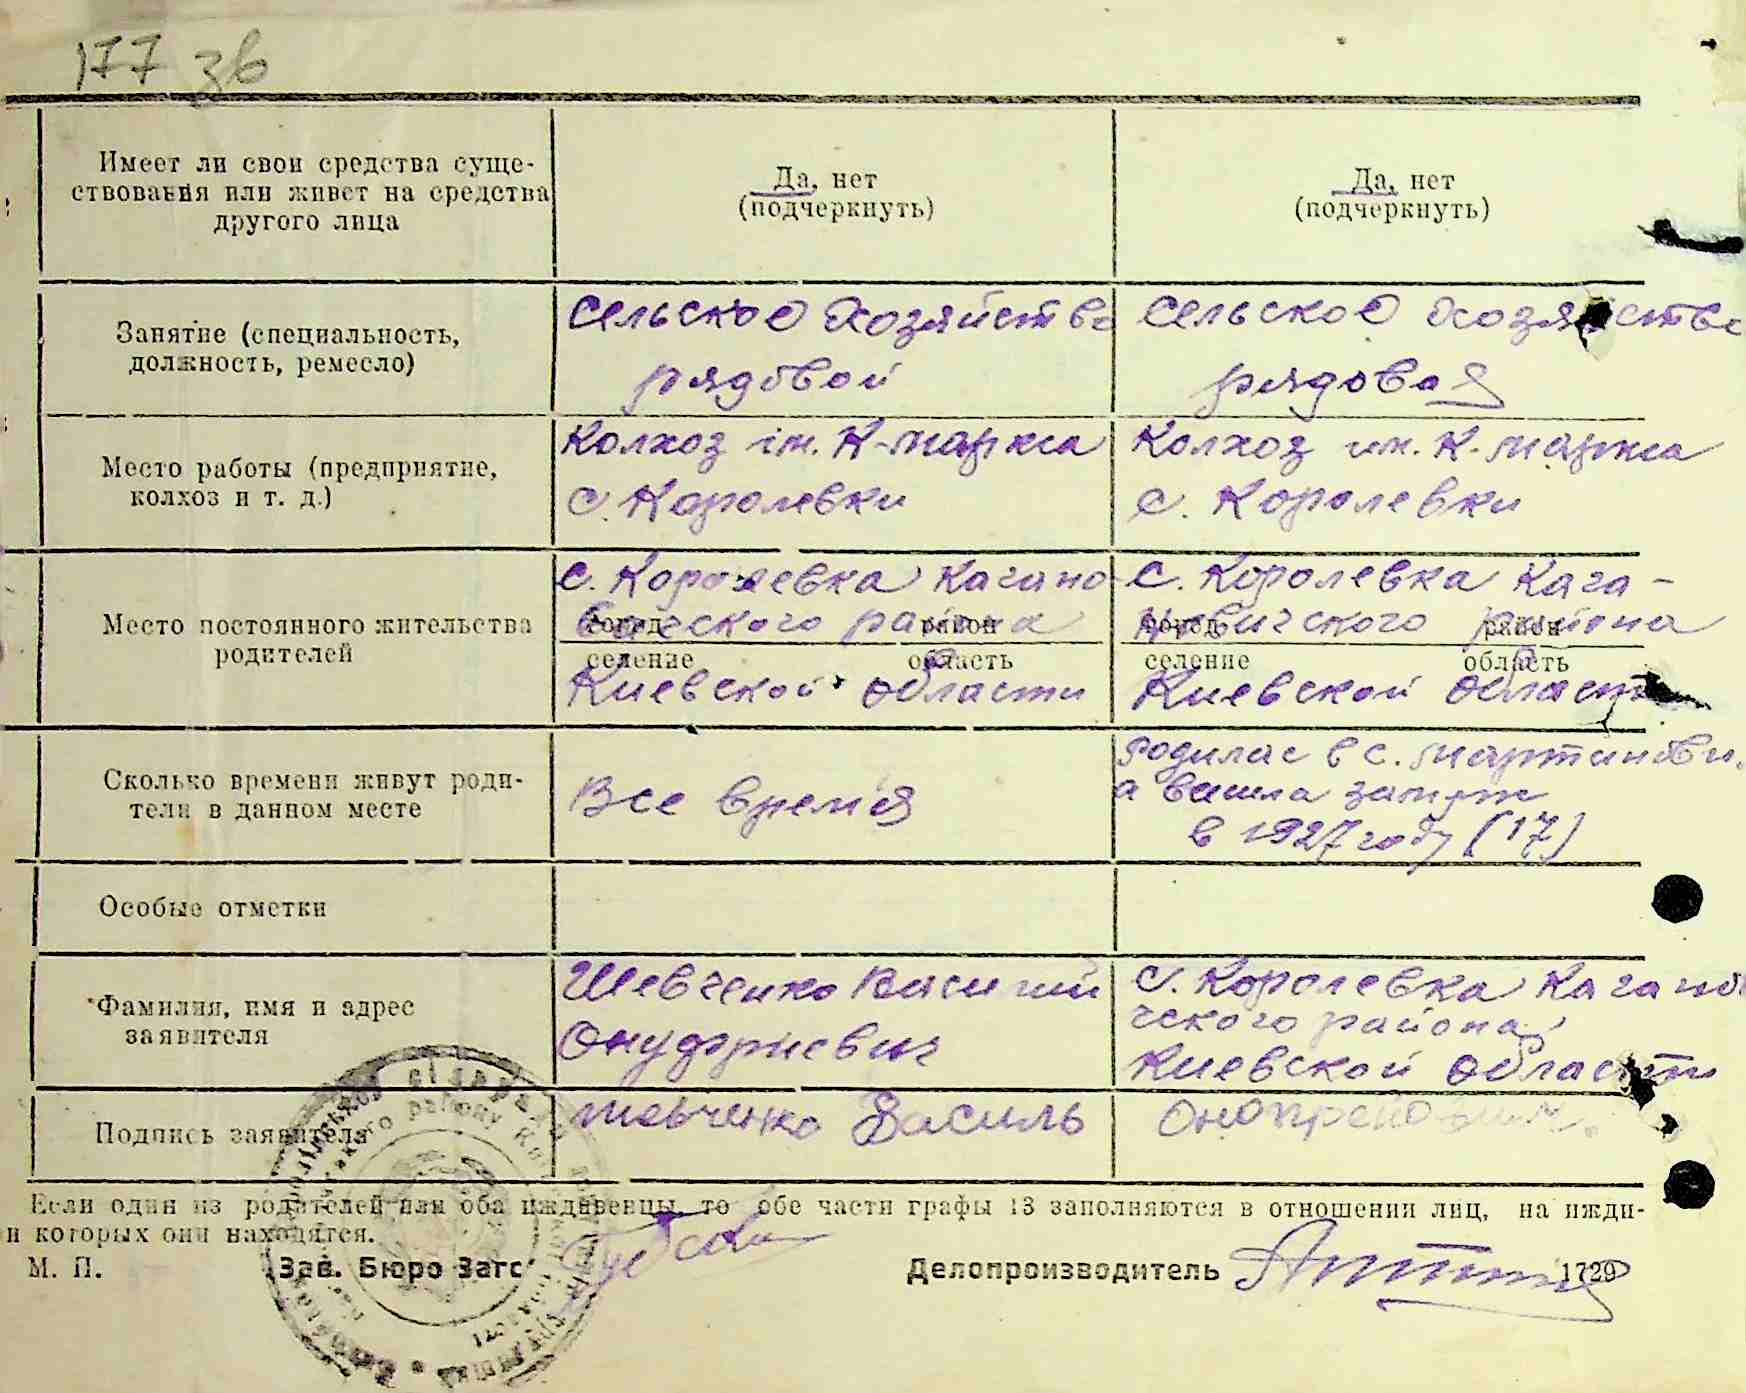 177 зв
Имеет ли свои средства суще-
ствования или живет на средства
другого лица
Да, нет
(подчеркнуть)
Да, нет
(подчеркнуть)
Занятие (специальность,
должность, ремесло)
Сельское хозяйство
рядовой
Сельское хозяйство
рядовая
Место работы (предприятие,
колхоз и т. д.)
Колхоз ім. К-маркса
с Королевки
Колхоз им. К-маркса
с. Королевки
Место постоянного жительства
родителей
с. Королевка Кагано-
вического района
город район
селение область
Киевской области
с. Королевка Кага-
новичского района
город район
селение область
Киевской области
Сколько времени живут роди-
тели в данном месте
Все время
Родилас в с. Мартинови
а вишла замуж
в 1927 году (17)
Особые отметки
Фамилия, имя и адрес
заявителя
Шевченко Василий
Онуфриевич
с. Королевка Каганови
ческого района
Киевской области
Подпись заявителя
Шевченко Василь
Если один из родителей или оба иждивенцы, то обе части графы 13 заполняются в отношении лиц, на ижди-
и которых они находятся.
М. П.
Зав. Бюро Загс
Делопроизводитель
1729